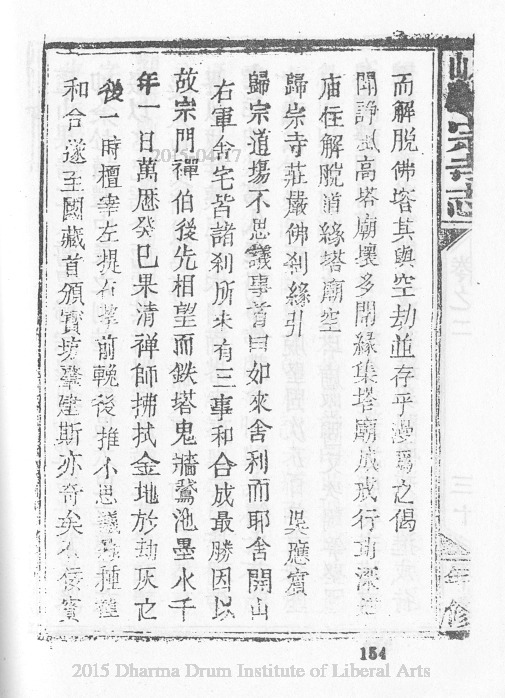 而解脫佛塔其與空劫並存乎漫為之偈
聞靜戒高塔廟壞多聞緣集塔廟成戒行功深
庙住解脫道緣塔廟空
歸宗寺莊嚴佛刹緣引 吳應賓
歸宗道場不思議事首曰如來舍利而耶舍開山
右軍舍宅皆諸刹所未有三事和合成最勝因以
故宗門禪伯後先相望而鉄塔鬼牆鵞池墨水千
年一日萬曆癸巳果清禅師拂拭金地於劫灰之
後一時檀宰左提右挈前輓後推不思議種種
和合遂至國藏首頒寶坊肇建斯亦奇矣
宗寺志
卷之二
三十
年修
154
2015/04/17
2015 Dharma Drum Institute of Liberal Arts